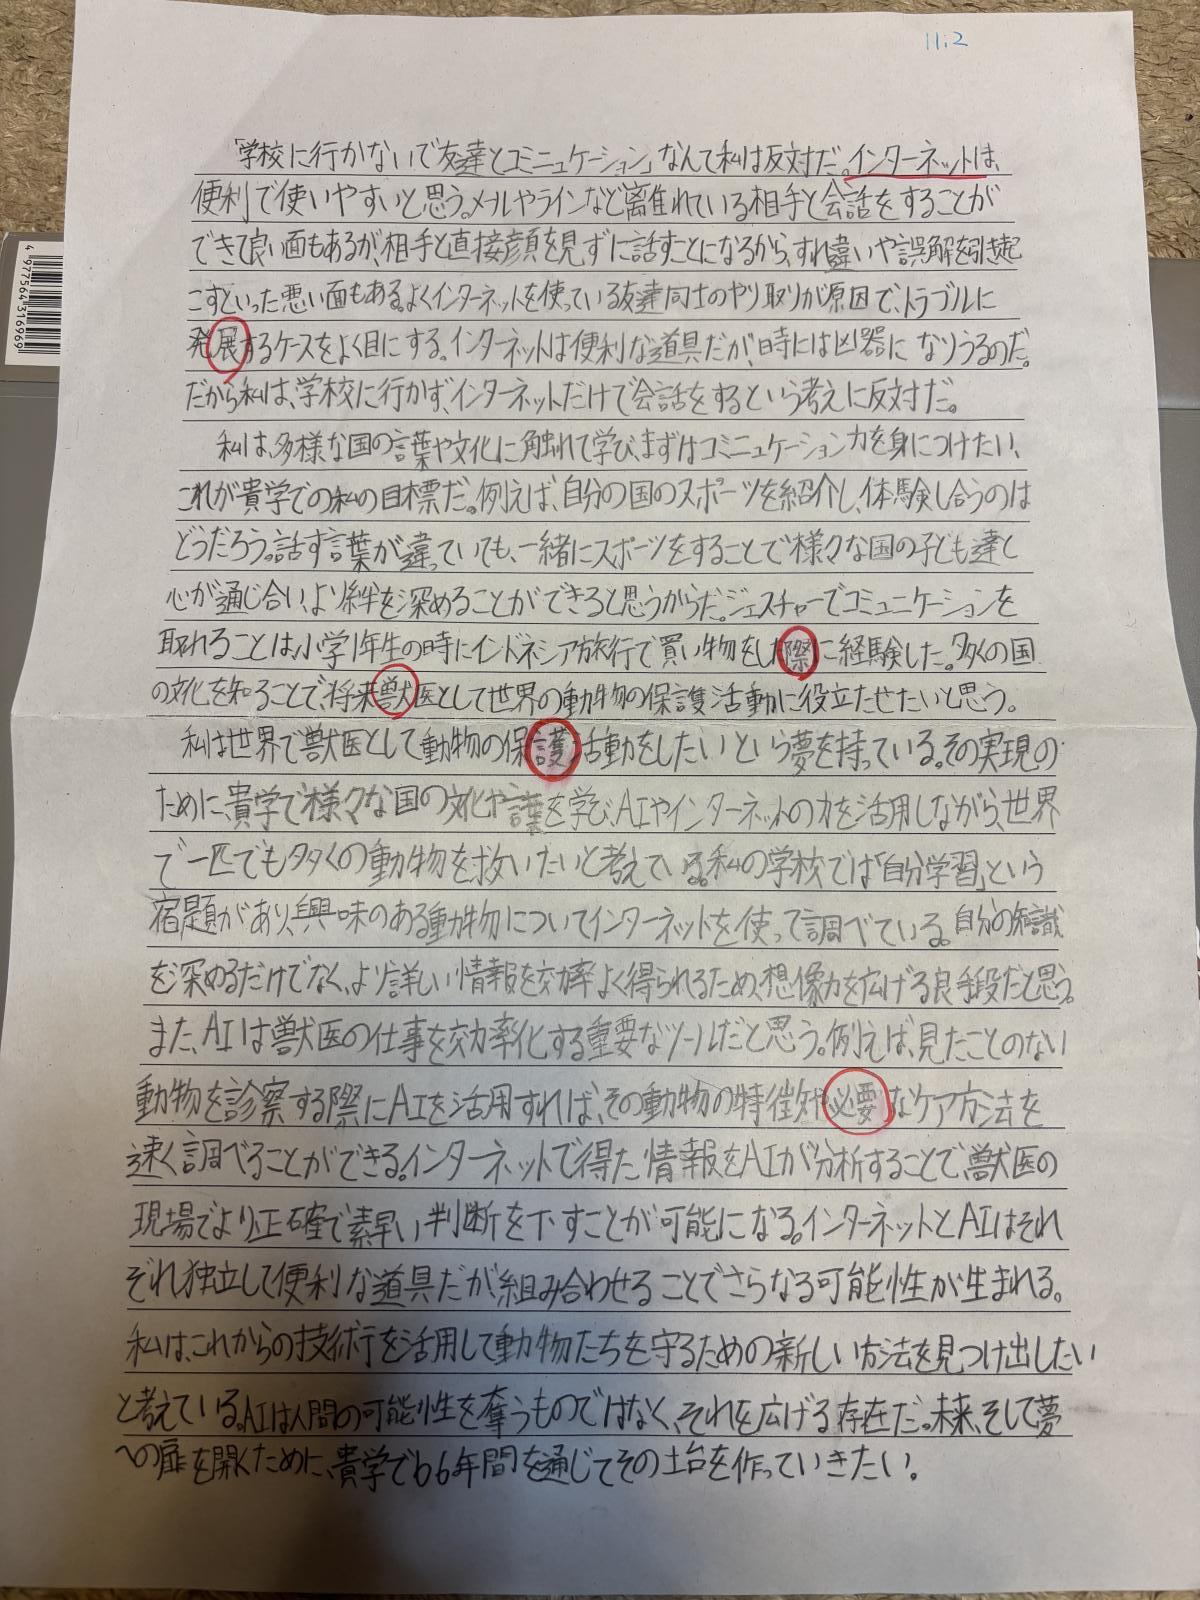 11.2
「学校に行かないで友達とコミニュケーション」なんて私は反対だ。インターネットは、
便利で使いやすいと思う。メールやラインなど離れている相手と会話をすることが
できて良い面もあるが、相手と直接顔を見ずに話すことになるから、すれ違いや誤解を引き起
こすといった悪い面もある。よくインターネットを使っている友達同士のやり取りが原因で、トラブルに
発展するケースをよく目にする。インターネットは便利な道具だが、時には凶器になりうるのだ。
だから私は、学校に行かず、インターネットだけで会話をするという考えに反対だ。
私は、多様な国の言葉や文化に触れて学び、まずはコミニュケーション力を身につけたい、
これが貴学での私の目標だ。例えば、自分の国のスポーツを紹介し、体験し合うのは
どうだろう。話す言葉が違っていても、一緒にスポーツをすることで様々な国の子ども達と
心が通じ合い、より絆を深めることができると思うからだ。ジェスチャーでコミュニケーションを
取れることは小学1年生の時にインドネシア旅行で買い物をした際に経験した。多くの国
の文化を知ることで、将来獣医として世界の動物の保護活動に役立たせたいと思う。
私は世界で獣医として動物の保護活動をしたいという夢を持っている。その実現の
ために、貴学で様々な国の文化や言葉を学び、AIやインターネットの力を活用しながら、世界
で一匹でも多くの動物を救いたいと考えている。私の学校では「自分学習」という
宿題があり、興味のある動物についてインターネットを使って調べている。自分の知識
を深めるだけでなく、より詳しい情報を効率よく得られるため、想像力を広げる良手段だと思う。
また、AIは獣医の仕事を効率化する重要なツールだと思う。例えば、見たことのない
動物を診察する際にAIを活用すれば、その動物の特徴や必要なケア方法を
速く調べることができる。インターネットで得た情報をAIが分析することで、獣医の
現場でより正確で素早い判断を下すことが可能になる。インターネットとAIはそれ
ぞれ独立して便利な道具だが組み合わせることでさらなる可能性が生まれる。
私は、これからの技術を活用して動物たちを守るための新しい方法を見つけ出したい
と考えている。AIは人間の可能性を奪うものではなく、それを広げる存在だ。未来、そして夢
への扉を開くために、貴学での6年間を通じてその土台を作っていきたい。
4977564316969